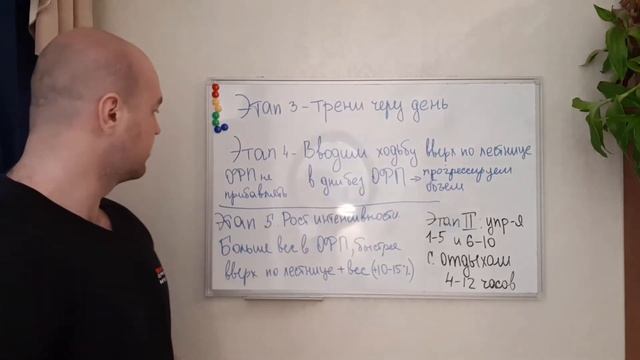 Этап 3 - трени черу день
Этап 4 - Вводим ходьбу вверх по лестнице
ОФП не прибавлять
в дни без ОФП → прогрессируем объем
Этап 5 Рост интенсивности
Больше вес в ОФП, быстрее
вверх по лестнице + вес (+10-15%)
Этап II упр-я
1-5 и 6-10
с отдыхом
4-12 часов